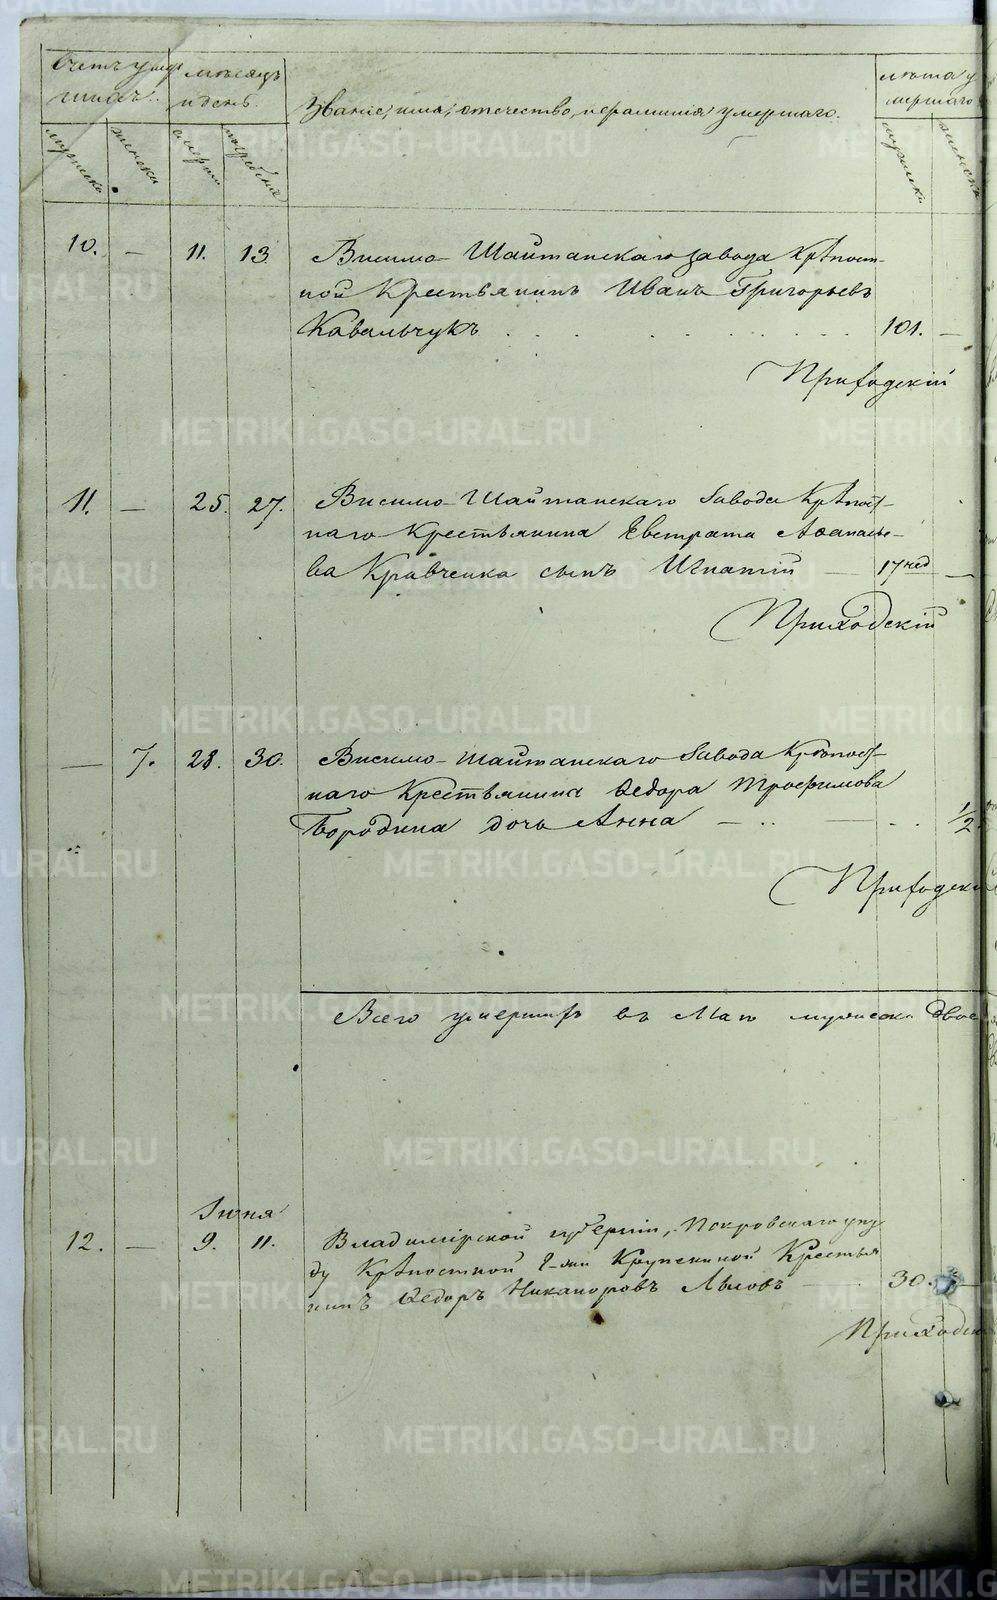 Счетъ умер мѣсяцъ лѣта у
шихъ. и день. Званіе, имя, отечество, и фамилія умершаго. мершаго
мужеска женска смерти погребенія мужска женска
10. — 11. 13 Висимо-Шайтанскаго завода Крѣпост-
ной Крестьянинъ Иванъ Григорьевъ
Кавальчукъ 101. —
Приходскій
11. — 25. 27. Висимо-Шайтанскаго Завода Крѣпост-
наго Крестьянина Евстрата Аѳанасье-
ва Кравченка сынъ Игнатій — 17 нед —
Приходскій
— 7. 28. 30. Висимо-Шайтанскаго Завода Крѣпост-
наго Крестьянина Ѳедора Трофимова
Бородина дочь Анна — 1/2
Приходскі
Всего умершихъ въ Маѣ мужеска двое
Іюня
12. — 9. 11. Владимірской губерніи, Покровскаго уѣз
ду Крѣпостной Г-жи Крупениной Крестья
нинъ Ѳедоръ Никаноровъ Лызовъ — 30. —
Приходскі
METRIKI.GASO-URAL.RU